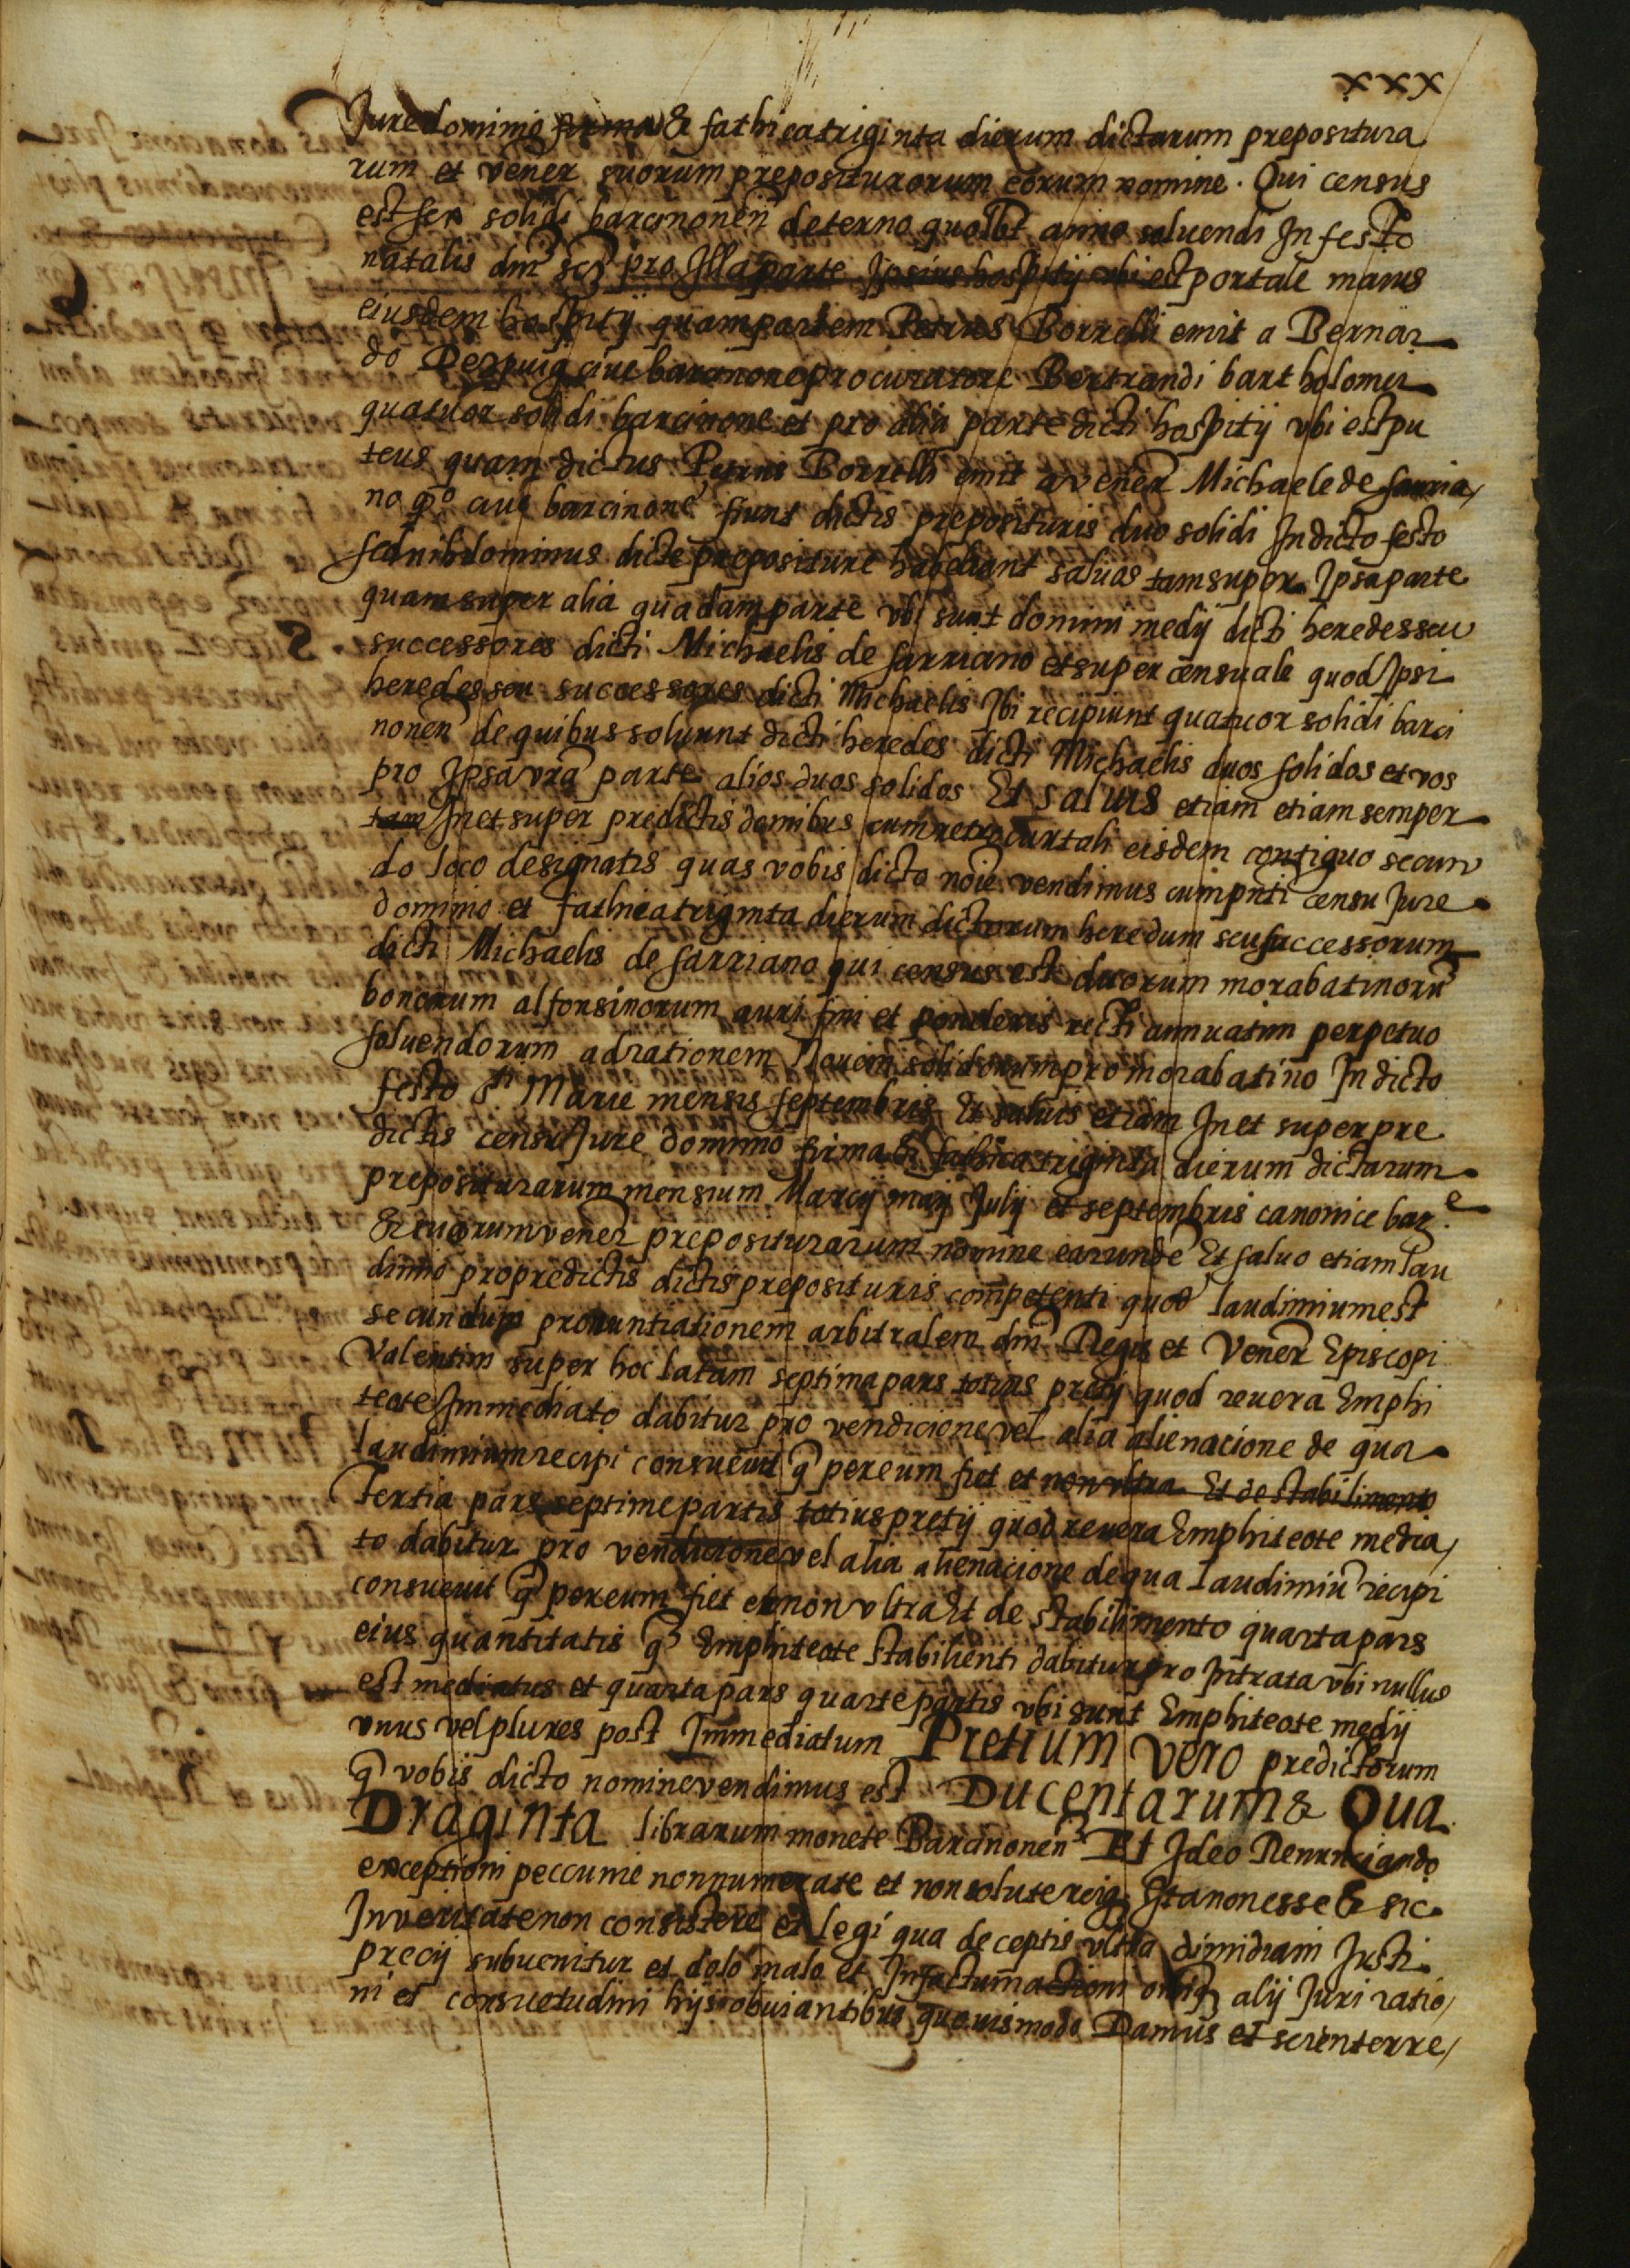 xxx
Jure dominio firma & fathica triginta dierum dictarum prepositura
rum et vener suorum prepositurorum eorum nomine. Qui census
est sex solidi barcinonen de terno quolibt anno soluendi In festo
natalis dni scz pro Illa parte Ipsius hospitij vbi est portale maius
eiusdem hospitij quam partem Petrus Borrelli emit a Bernar
do Despuig ciue barcinone procuratore Bertrandi bartholomei
quatuor solidi barcinone et pro alia parte dicti hospitij vbi est pu
teus quam dictus Petrus Borrelli emit a vener Michaele de sarria,
no qo ciue barcinone fiunt dictis preposituris duo solidi In dicto festo
sed nib dominus dicte prepositure habebant saluas tam super Ipsa parte
quam super alia quadam parte vbi sunt domini medij dicti heredes seu
successores dicti Michaelis de sarriano et super censuale quod Ipsi
heredes seu successores dicti Michaelis Ibi recipiunt quatuor solidi barci
nonen de quibus soluunt dicti heredes dicti Michaelis duos solidos et vos
pro Ipsa vra parte alios duos solidos Et saluis etiam etiam semper
tam In et super predictis domibus cum retro curtali eisdem contiguo secun
do loco designatis quas vobis dicto noie vendimus cum pnti censu Jure
dominio et fathica triginta dierum dictorum heredum seu successorum
dicti Michaelis de sarriano qui census est duorum morabatinoru
bonorum alfonsinorum auri fini et ponderis recti annuatim perpetuo
soluendorum ad rationem Nouem solidorum pro morabatino In dicto
festo Ste Marie mensis septembris Et saluis etiam In et super pre
dictis censu Jure dominio firma & fathica triginta dierum dictarum
prepositurarum mensium Marcij maij Julij et septembris canonice bare
& suorum vener prepositurarum nomine earunde Et saluo etiam lau
dimio pro predictis dictis preposituris competenti quod laudimium est
secundum pronuntiationem arbitralem dni Regis et Vener Episcopi
Valentini super hoc latam septima pars totius pretij quod reuera Emphi
teote Immediato dabitur pro vendicione vel alia alienacione de qua
laudimium recipi consueuit q per eum fiet et non vltra Et de stabilimento
Tertia pars septime partis totius pretij quod reuera Emphiteote media,
to dabitur pro vendicione vel alia alienacione de qua laudimiu recipi
consueuit q per eum fiet et non vltra Et de stabilimento quarta pars
eius quantitatis q Emphiteote stabilienti dabitur pro Intrata vbi nullus
est mediatus et quarta pars quarte partis vbi sunt Emphiteote medij
vnus vel plures post Immediatum Pretium vero predictorum
q vobis dicto nomine vendimus est Ducentarum & Qua
Draginta librarum monete Barcinonen Et Ideo Renunciando
exceptioni peccunie non numerate et non solute reiq Ita non esse & sic
In veritate non consistere et legi qua deceptis vltra dimidiam Justi
precij subuenitur et dolo malo et In factum actioni oibq alij Juri ratio,
ni et consuetudini hijs obuiantibus quouismodo Damus et scienter re,